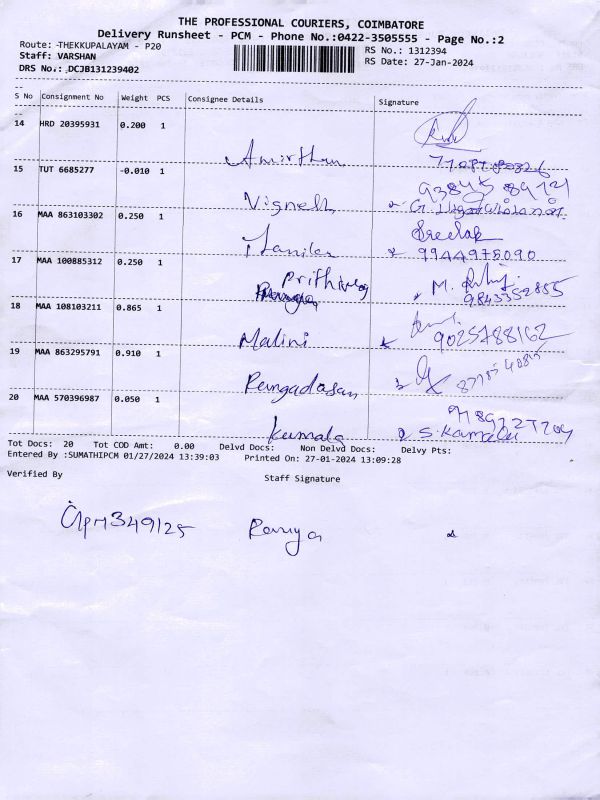 THE PROFESSIONAL COURIERS, COIMBATORE
Delivery Runsheet - PCM - Phone No.:0422-3505555 - Page No.:2
Route: -THEKKUPALAYAM - P20
RS No.: 1312394
Staff: VARSHAN
RS Date: 27-Jan-2024
DRS No.: DCJB131239402
S No Consignment No Weight PCS Consignee Details Signature
14 HRD 20395931 0.200 1
Amirthan
15 TUT 6685277 -0.010 1
93845 89721
Vignesh
16 MAA 863103302 0.250 1
Sreelak
9944978090
17 MAA 100885312 0.250 1
Prithivraj
9843352855
18 MAA 108103211 0.865 1
Malini 9025788162
19 MAA 863295791 0.910 1
Rangadasan
20 MAA 570396987 0.050 1
Kamala S. Kamala
Tot Docs: 20 Tot COD Amt: 0.00 Delvd Docs: Non Delvd Docs: Delvy Pts:
Entered By :SUMATHIPCM 01/27/2024 13:39:03 Printed On: 27-01-2024 13:09:28
Verified By Staff Signature
349125 Ramya